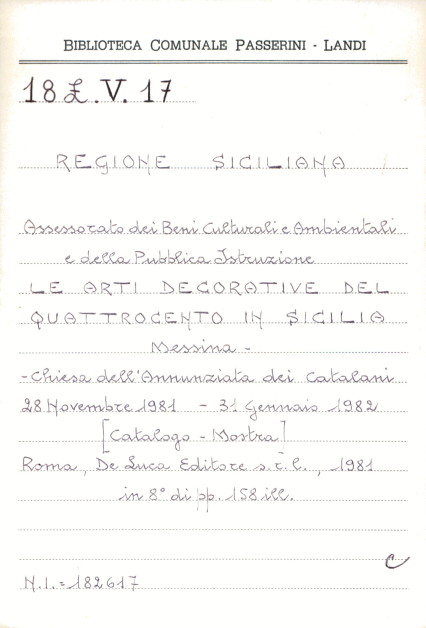 BIBLIOTECA COMUNALE PASSERINI - LANDI
18 £.V. 17
REGIONE SICILIANA
Assessorato dei Beni Culturali e Ambientali
e della Pubblica Istruzione
LE ARTI DECORATIVE DEL
QUATTROCENTO IN SICILIA
Messina -
- Chiesa dell'Annunziata dei Catalani
28 Novembre 1981 - 31 Gennaio 1982
[Catalogo - Mostra]
Roma, De Luca Editore s.r.l., 1981
in 8° di pp. 158 ill.
C
N.I. = 182617